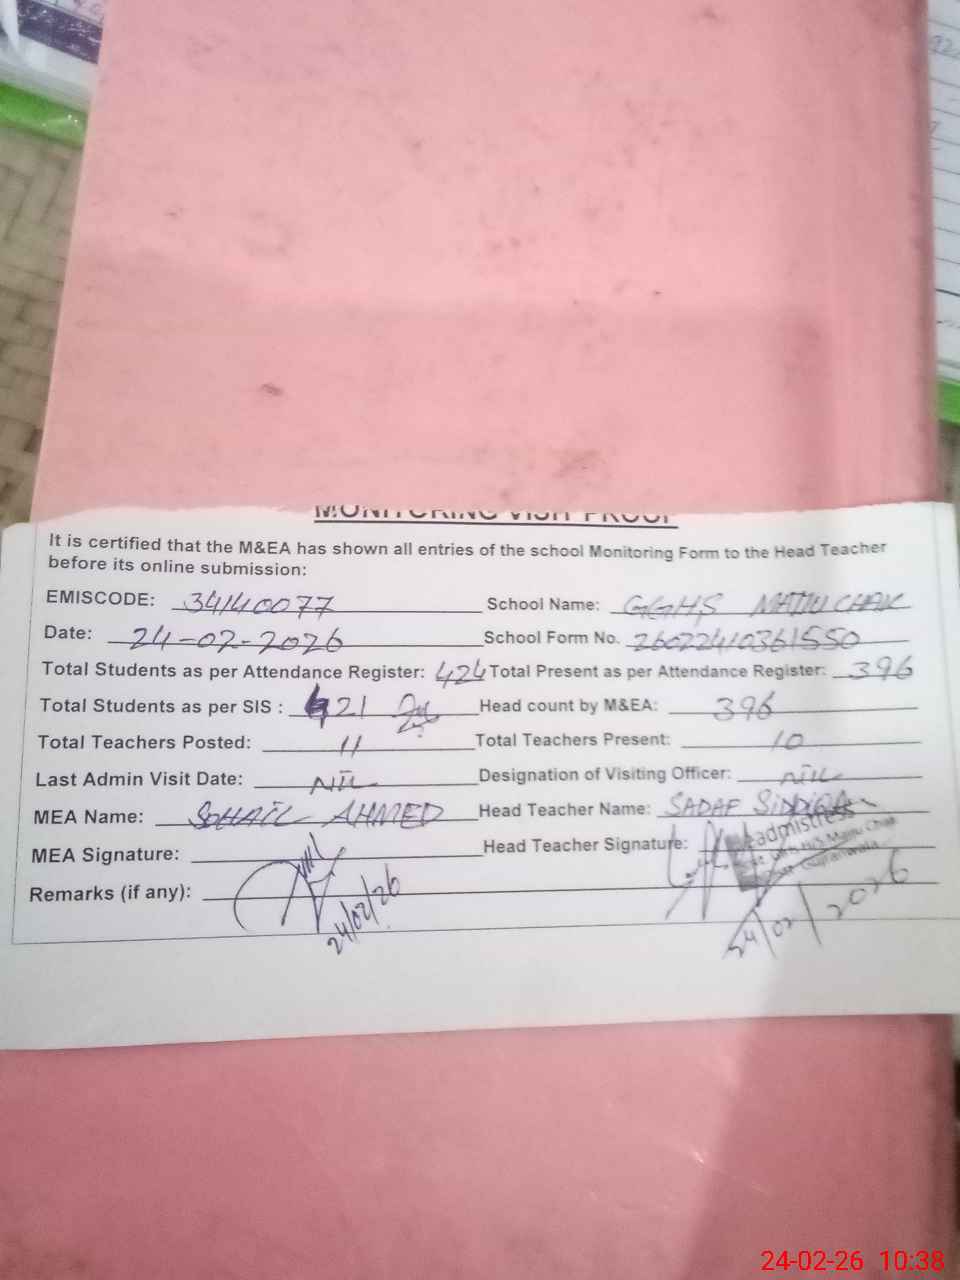 MONITORING VISIT PROOF
It is certified that the M&EA has shown all entries of the school Monitoring Form to the Head Teacher
before its online submission:
EMISCODE: 34140077 School Name: GGHS MAJJU CHAK
Date: 24-02-2026 School Form No. 26022410361550
Total Students as per Attendance Register: 424 Total Present as per Attendance Register: 396
Total Students as per SIS : 421 Head count by M&EA: 396
Total Teachers Posted: 11 Total Teachers Present: 10
Last Admin Visit Date: NIL Designation of Visiting Officer: NIL
MEA Name: SOHAIL AHMED Head Teacher Name: SADAF SIDDIQA
MEA Signature: Head Teacher Signature: Headmistress
Majju Chak
Gujranwala
Remarks (if any):
24/02/26
24/02/2026
24-02-26 10:38